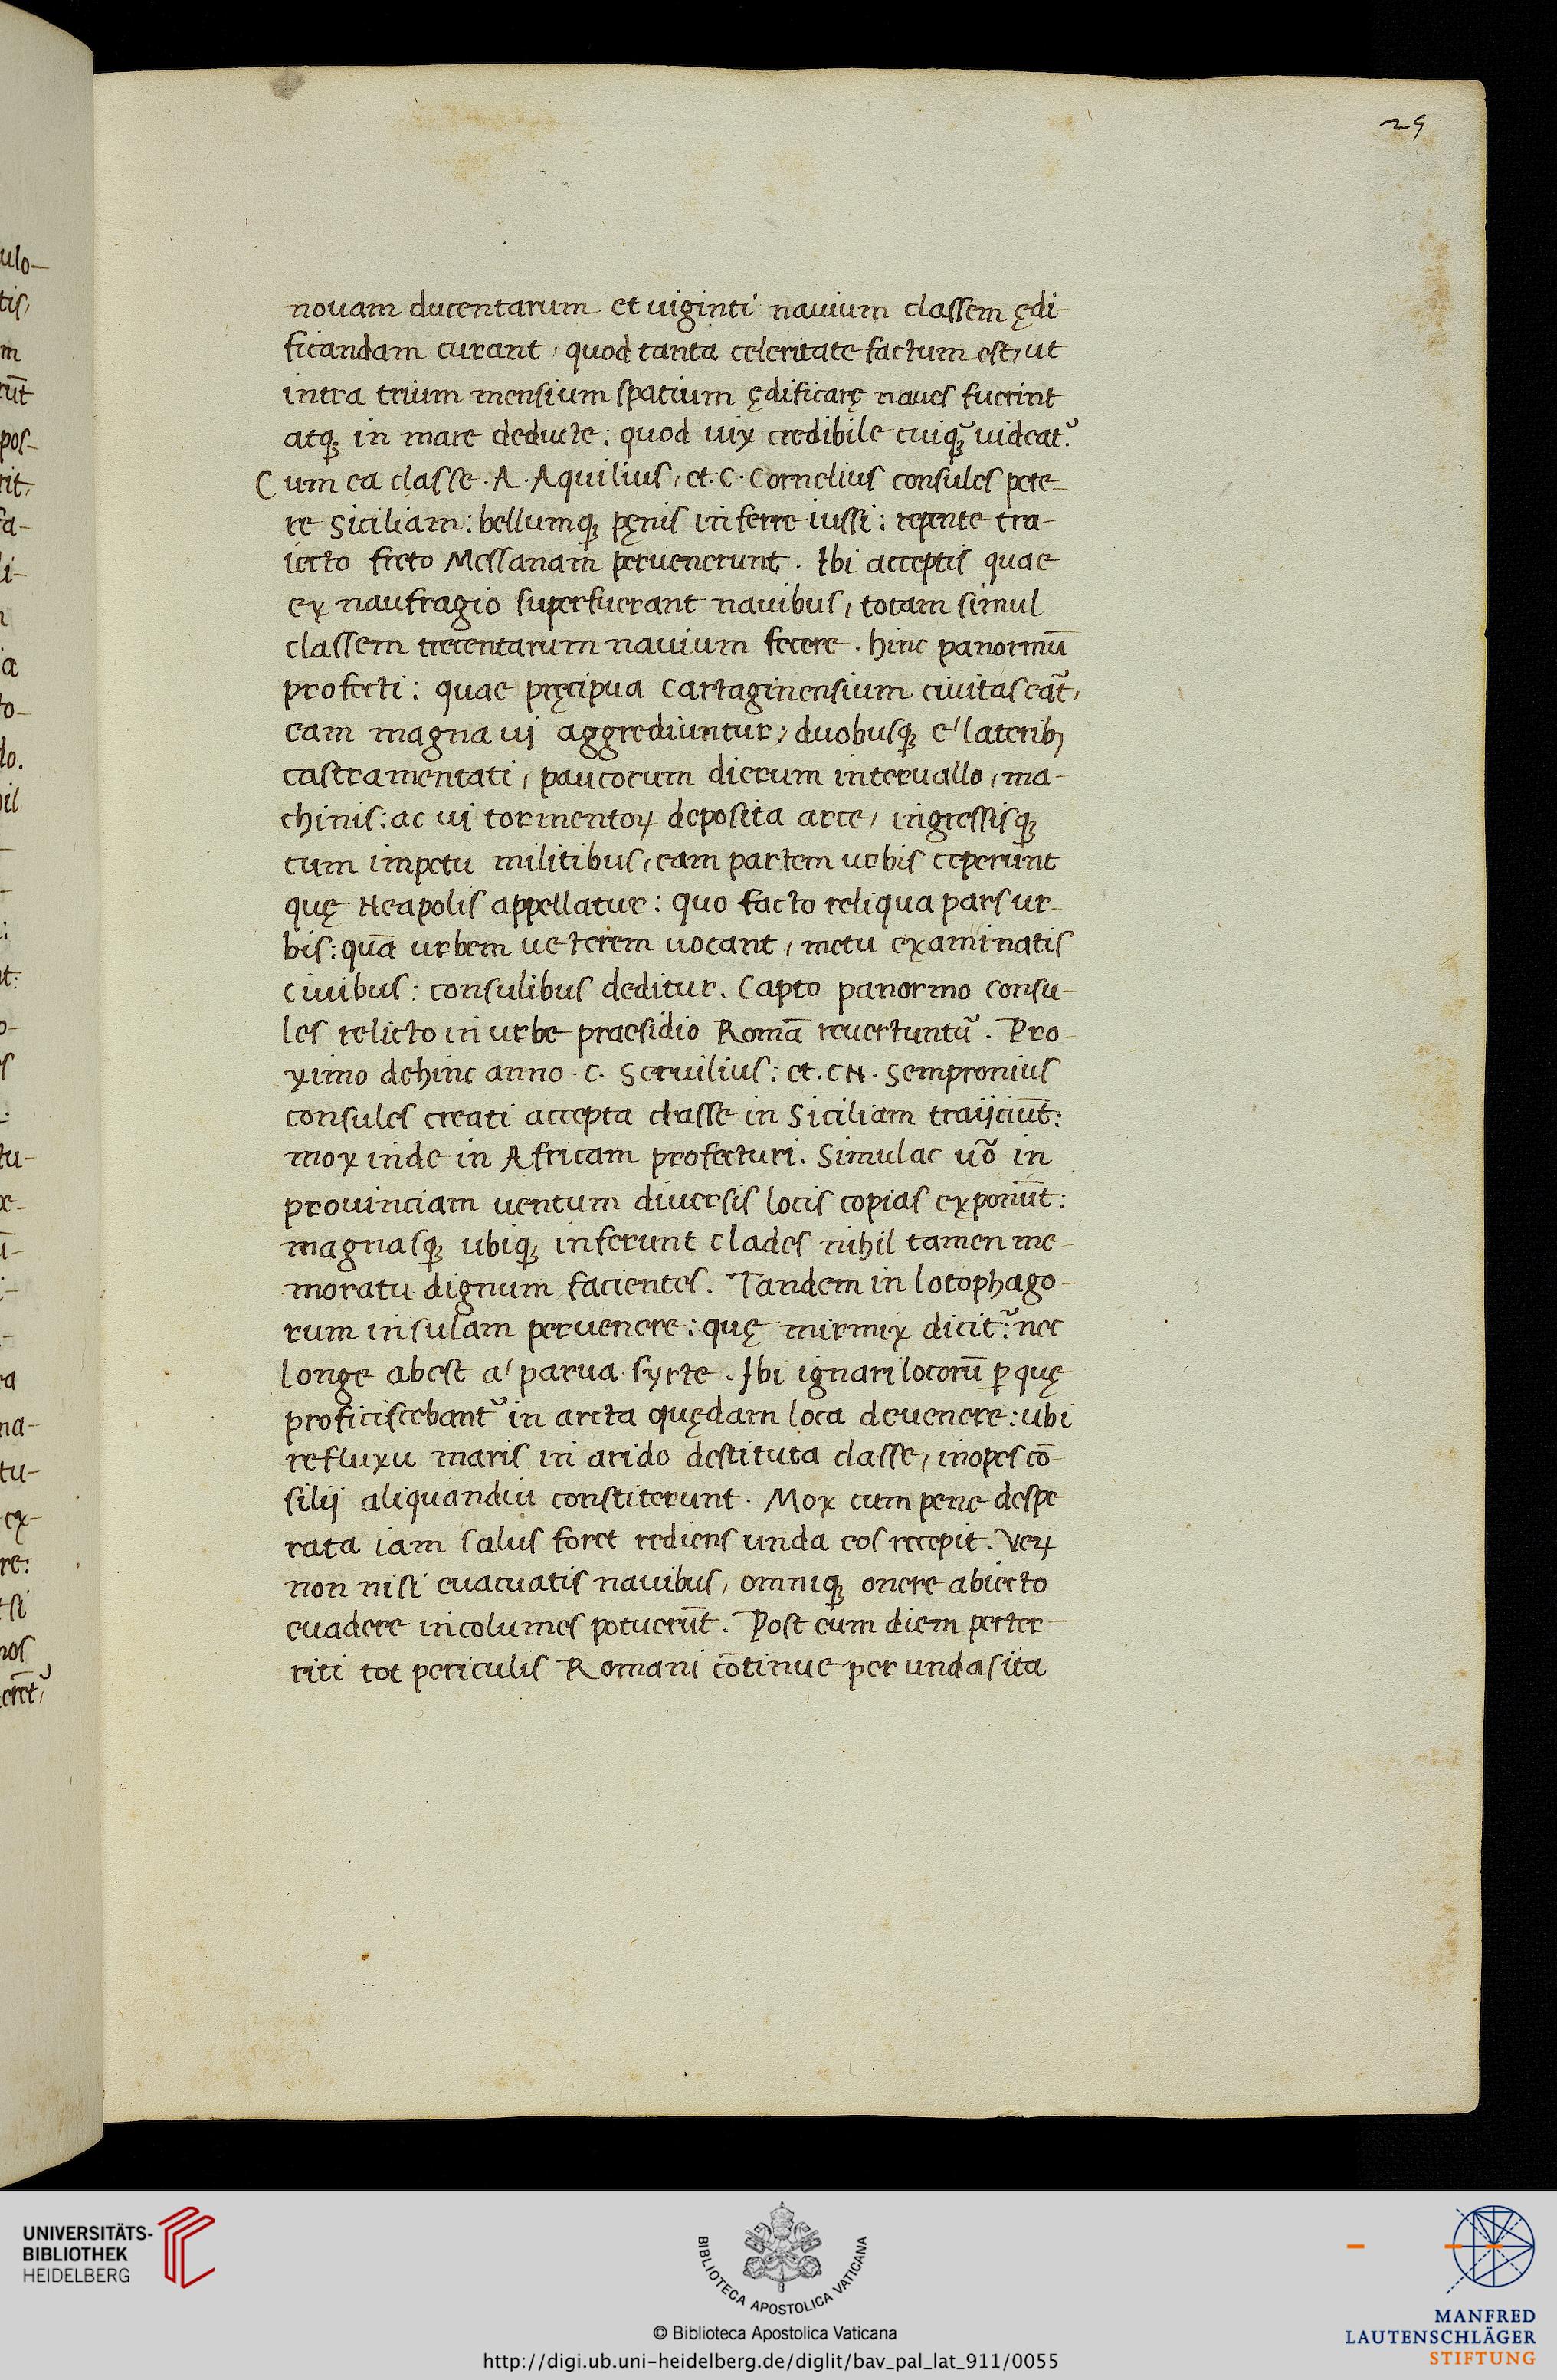 29
nouam ducentarum et uiginti nauium classem ędi-
ficandam curant, quod tanta celeritate factum est, ut
intra trium mensium spatium ędificatę naues fuerint
atqꝫ in mare deducte: quod uix credibile cuiqꝫ̃ uideat᷑.
Cum ea classe. A. Aquilius, et. C. Cornelius consules pete-
re Siciliam: bellumqꝫ pęnis inferre iussi: repente tra-
iecto freto Messanam peruenerunt. Ibi acceptis quae
ex naufragio superfuerant nauibus, totam simul
classem trecentarum nauium fecere. hinc panormū
profecti: quae pręcipua Cartaginensium ciuitas eāt,
eam magna ui aggrediuntur; duobusqꝫ e' laterib;
castramentati, paucorum dierum interuallo, ma-
chinis: ac ui tormentoꝝ deposita arce, ingressisqꝫ
cum impetu militibus, eam partem urbis ceperunt
quę Neapolis appellatur: quo facto reliqua pars ur-
bis: quā urbem ueterem uocant, metu examinatis
ciuibus: consulibus deditur. Capto panormo consu-
les relicto in urbe praesidio Romā reuertuntu᷑. Pro-
ximo dehinc anno. C. Seruilius: et. CN. Sempronius
consules creati accepta classe in Siciliam traijciūt:
mox inde in Africam profecturi. Simulac uō in
prouinciam uentum diuersis locis copias exponūt:
magnasqꝫ ubiqꝫ inferunt clades nihil tamen me-
moratu dignum facientes. Tandem in lotophago-
rum insulam peruenere: quę mirmix dicit᷑: nec
longe abest a' parua syrte. Ibi ignari locorū ꝑ quę
proficiscebant᷑ in arcta quędam loca deuenere: ubi
refluxu maris in arido destituta classe, inopes cō-
silij aliquandiu constiterunt. Mox cum pene despe
rata iam salus foret rediens unda eos recepit. Veꝝ
non nisi euacuatis nauibus, omniqꝫ onere abiecto
euadere incolumes potuerūt. Post eum diem perter-
riti tot periculis Romani cōtinue per undas ita
UNIVERSITÄTS-
BIBLIOTHEK
HEIDELBERG
BIBLIOTECA APOSTOLICA VATICANA
© Biblioteca Apostolica Vaticana
http://digi.ub.uni-heidelberg.de/diglit/bav_pal_lat_911/0055
MANFRED
LAUTENSCHLÄGER
STIFTUNG